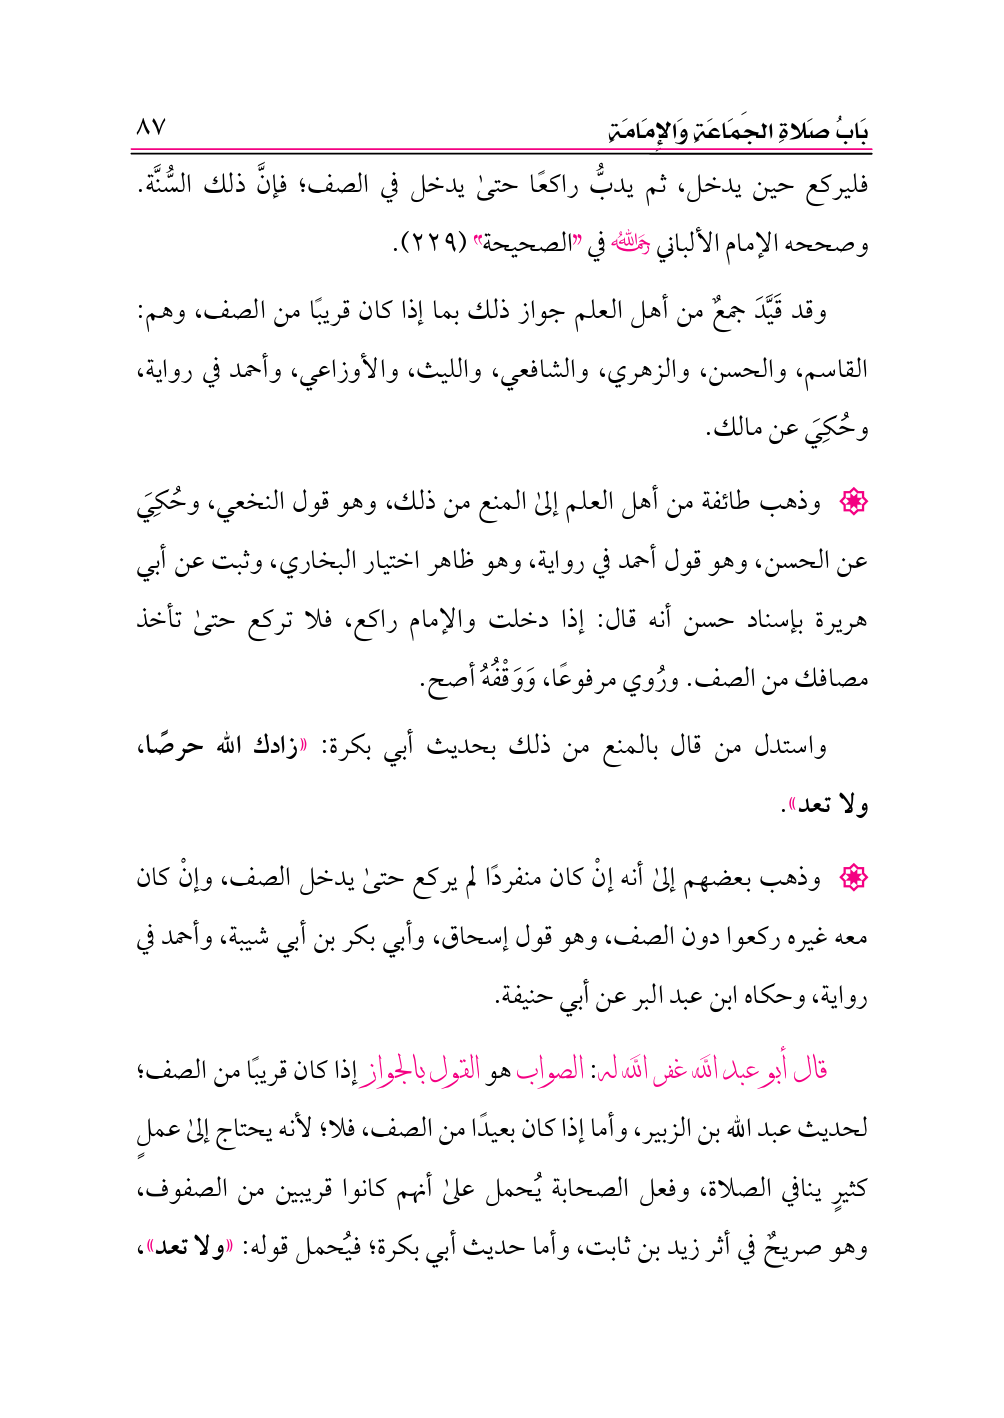 بَابُ صَلاةِ الجَمَاعَةِ وَالإِمَامَةِ ٨٧
فليركع حين يدخل، ثم يدبُّ راكعًا حتىٰ يدخل في الصف؛ فإنَّ ذلك السُّنَّة.
وصححه الإمام الألباني رَحِمَهُ اللهُ في "الصحيحة" (٢٢٩).
وقد قَيَّدَ جمعٌ من أهل العلم جواز ذلك بما إذا كان قريبًا من الصف، وهم:
القاسم، والحسن، والزهري، والشافعي، والليث، والأوزاعي، وأحمد في رواية،
وحُكِيَ عن مالك.
وذهب طائفة من أهل العلم إلىٰ المنع من ذلك، وهو قول النخعي، وحُكِيَ
عن الحسن، وهو قول أحمد في رواية، وهو ظاهر اختيار البخاري، وثبت عن أبي
هريرة بإسناد حسن أنه قال: إذا دخلت والإمام راكع، فلا تركع حتىٰ تأخذ
مصافك من الصف. ورُوي مرفوعًا، وَوَقْفُهُ أصح.
واستدل من قال بالمنع من ذلك بحديث أبي بكرة: «زادك الله حرصًا،
ولا تعد».
وذهب بعضهم إلىٰ أنه إنْ كان منفردًا لم يركع حتىٰ يدخل الصف، وإنْ كان
معه غيره ركعوا دون الصف، وهو قول إسحاق، وأبي بكر بن أبي شيبة، وأحمد في
رواية، وحكاه ابن عبد البر عن أبي حنيفة.
قال أبو عبد الله غفر الله له: الصواب هو القول بالجواز إذا كان قريبًا من الصف؛
لحديث عبد الله بن الزبير، وأما إذا كان بعيدًا من الصف، فلا؛ لأنه يحتاج إلىٰ عملٍ
كثيرٍ ينافي الصلاة، وفعل الصحابة يُحمل علىٰ أنهم كانوا قريبين من الصفوف،
وهو صريحٌ في أثر زيد بن ثابت، وأما حديث أبي بكرة؛ فيُحمل قوله: «ولا تعد»،